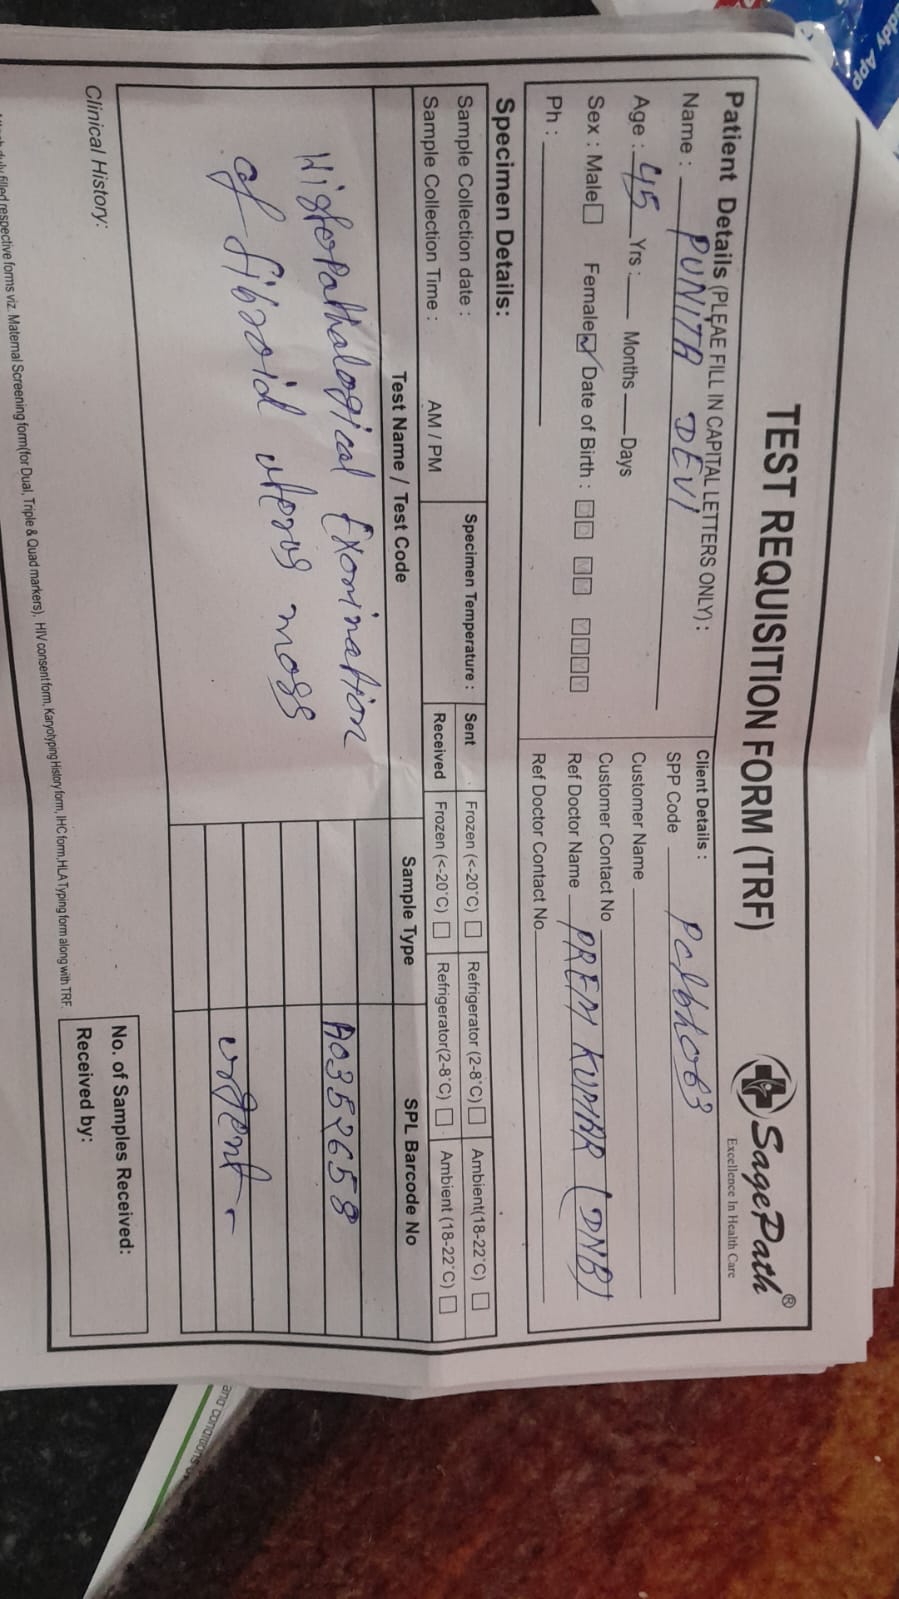 TEST REQUISITION FORM (TRF)
SagePath®
Excellence In Health Care
Patient Details (PLEAE FILL IN CAPITAL LETTERS ONLY) :
Name : PUNITA DEVI
Age : 45 Yrs : Months Days
Sex : Male Female Date of Birth : D D M M Y Y Y Y
Ph :
Client Details :
SPP Code
Customer Name
Customer Contact No
Ref Doctor Name PREM KUMAR (DNB)
Ref Doctor Contact No.
Specimen Details:
Sample Collection date :
Sample Collection Time : AM / PM
Specimen Temperature :
Sent Frozen (<-20°C) Refrigerator (2-8°C) Ambient(18-22°C)
Received Frozen (<-20°C) Refrigerator(2-8°C) Ambient (18-22°C)
Test Name / Test Code Sample Type SPL Barcode No
Histopathalogical Exomination
of fibroid uterus mass
A0352658
urgent
Clinical History:
No. of Samples Received:
Received by:
duly filled respective forms viz. Maternal Screening form(for Dual, Triple & Quad markers), HIV consent form, Karyotyping History form, IHC form,HLA Typing form along with TRF.
App
and conditions